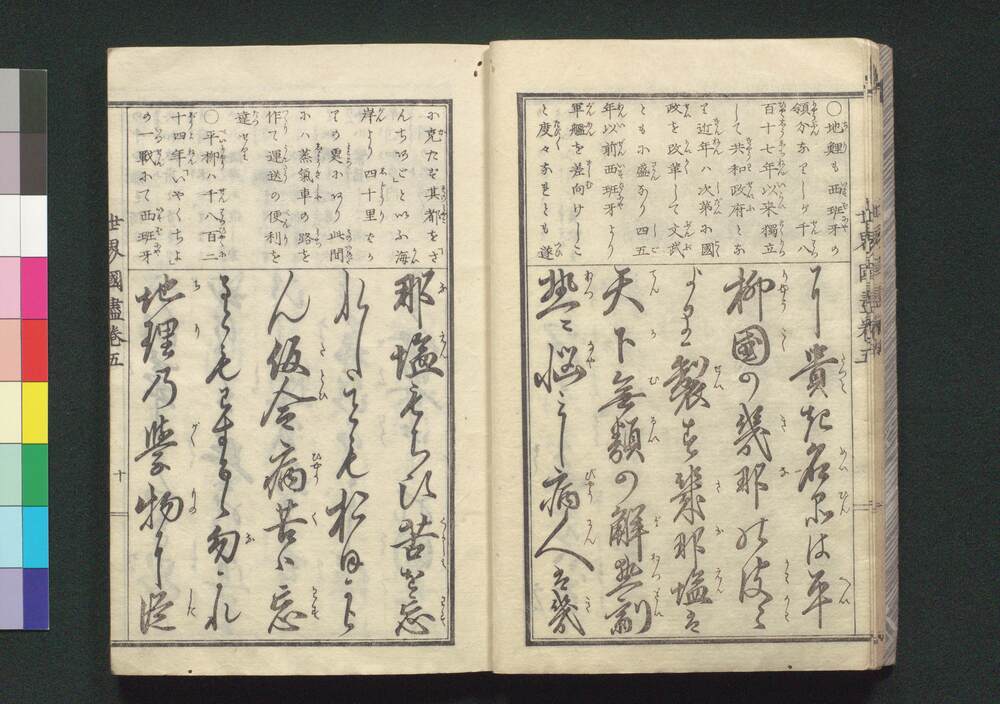 ○地鯉も西班牙の
領分なりしが千八
百十七年以来獨立
して共和政府とな
り近年ハ次第に國
政を改革して文武
とも小盛なり四五
年以前西班牙より
軍艦を差向けしこ
と度々なれども遂
に貴き名品は平
柳國の幾那の皮に
より製す幾那塩は
天下無類の解熱劑
熱に悩みし病人は幾
に克たず其都をさ
んちやごといふ海
岸より四十里ばか
りの奥にあり此間
にハ蒸氣車の路を
作て運送の便利を
達せり
○平柳ハ千八百二
十四年いやくちよ
の一戰にて西班牙
那塩もちひ苦を忘
れしことも於ほから
ん仮令病苦は忘
るともわするゝ勿れ
地理乃学物に従
世界國盡卷五
十